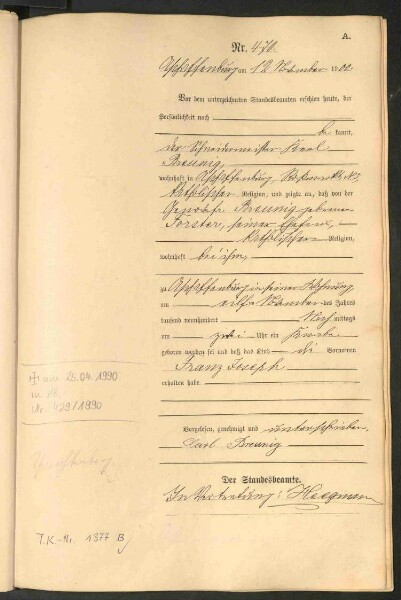 A.
Nr. 470.
Aschaffenburg am 12 November 1900.
Vor dem unterzeichneten Standesbeamten erschien heute, der
Persönlichkeit nach
be kannt,
der Schneidermeister Karl
Breunig,
wohnhaft in Aschaffenburg
katholischer Religion, und zeigte an, daß von der
Genovefa Breunig geborenen
Forster, seiner Ehefrau,
katholischer Religion,
wohnhaft bei ihm,
zu Aschaffenburg in seiner Wohnung
am elften November des Jahres
tausend neunhundert Nach mittags
um zwei Uhr ein Knabe
geboren worden sei und daß das Kind die Vornamen
Franz Joseph
erhalten habe.
Vorgelesen, genehmigt und unterschrieben
Carl Breunig
Der Standesbeamte.
In Vertretung:
am 25.04.1990
in
Nr. 429/1990
T.K.-Nr. 1377 B